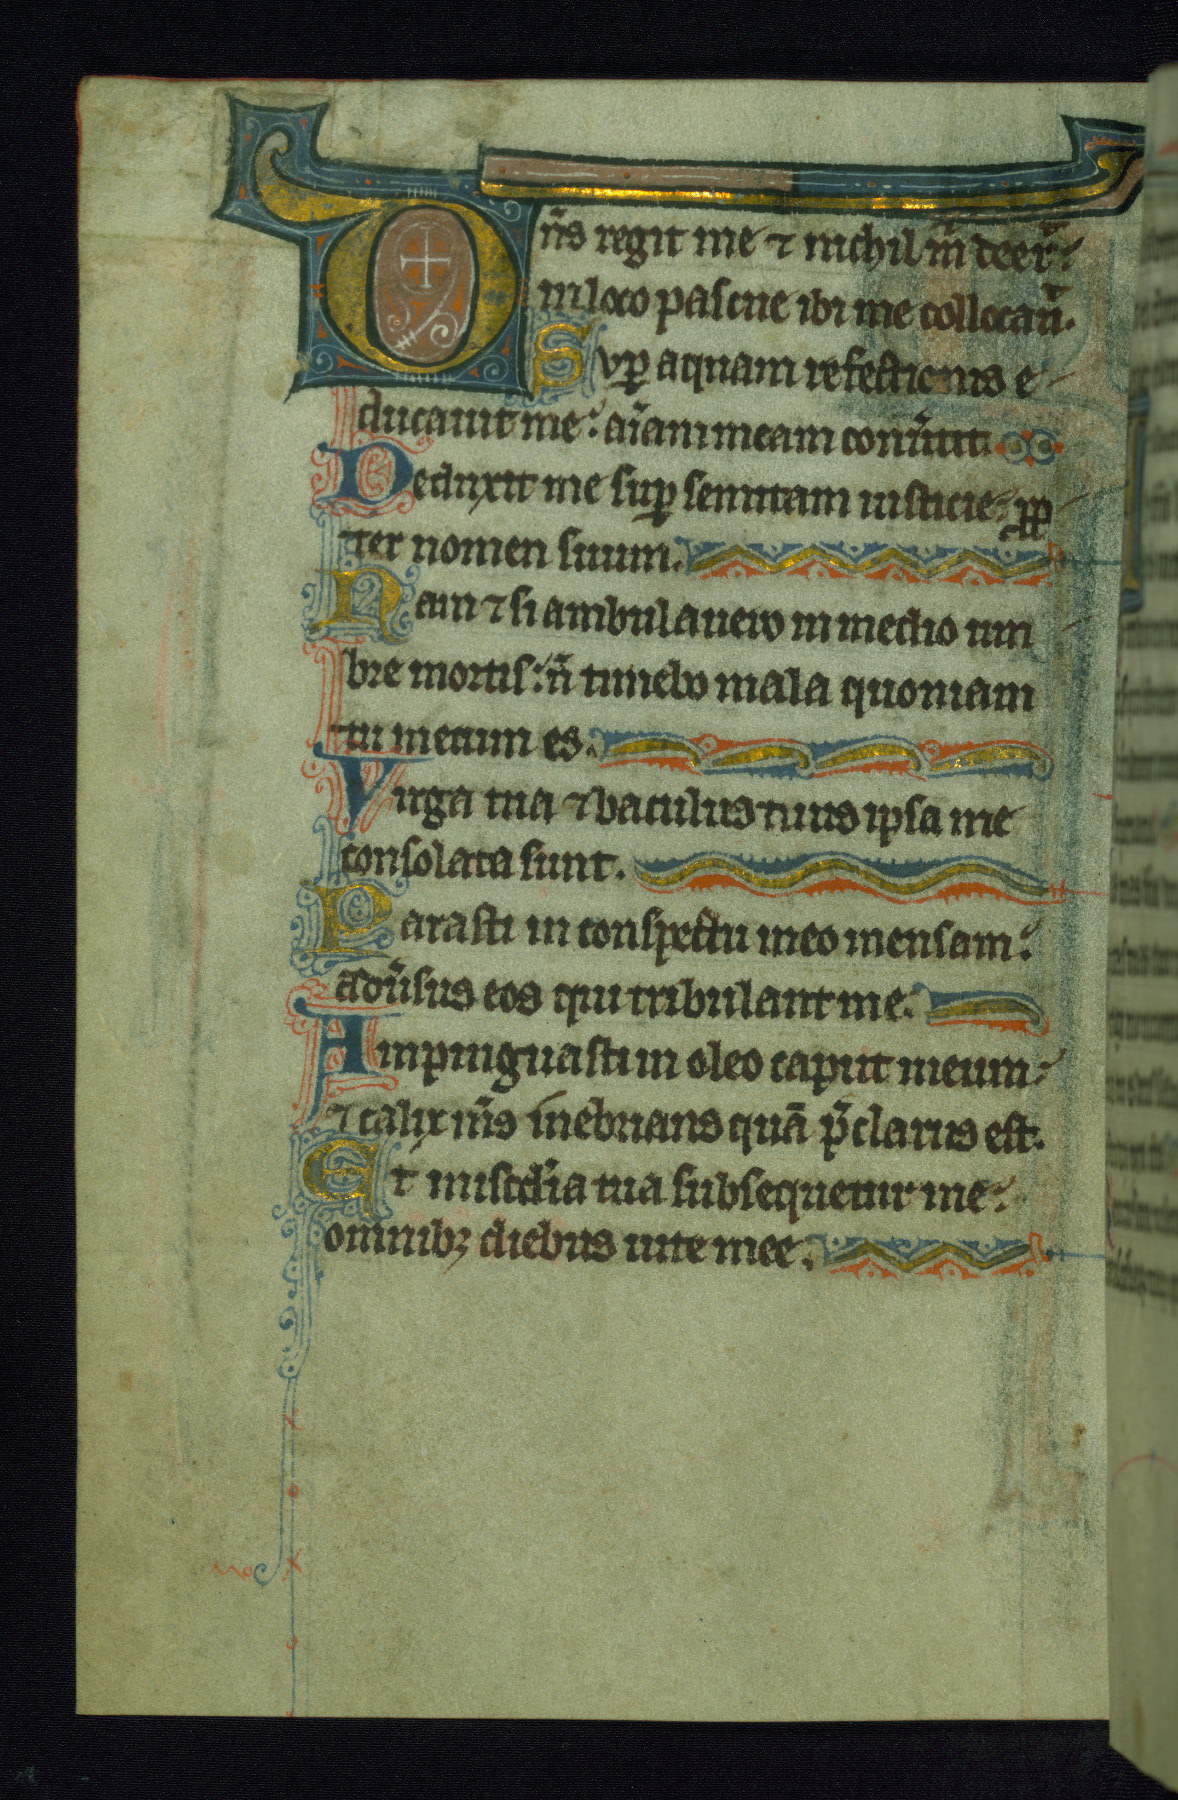 Dñs regit me ⁊ nichil m̃ deer̃:
in loco pascue ibi me collocaũ.
Sup aquam refectionis e
ducauit me: aĩam meam conũtit
Deduxit me sup semitam iusticie: pp
ter nomen suum.
Nam ⁊ si ambulauero in medio um
bre mortis: ñ timebo mala quoniam
tu mecum es.
Virga tua ⁊ baculus tuus ipsa me
consolata sunt.
Parasti in conspectu meo mensam:
adũsus eos qui tribulant me.
Inpinguasti in oleo caput meum:
⁊ calix m̃s inebrians quã p̃clarus est.
Et miscd̃ia tua subsequetur me:
omnibꝫ diebus uite mee.